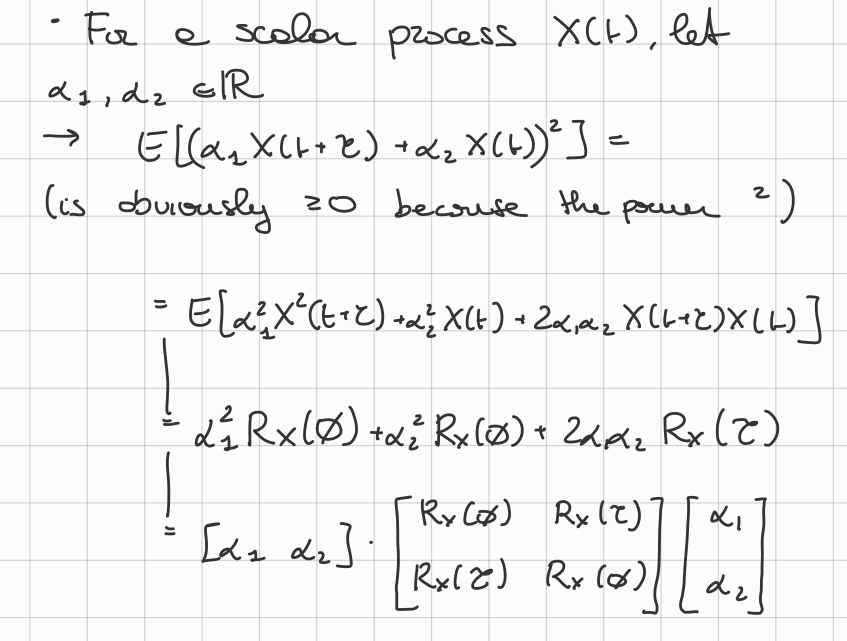 · For a scalar process X(t), let
α₁, α₂ ∈ ℝ
→ E[(α₁X(t+τ) + α₂X(t))²] =
(is obviously ≥0 because the power ²)
= E[α₁²X²(t+τ) + α₂²X(t) + 2α₁α₂ X(t+τ)X(t)]
= α₁² Rx(∅) + α₂² Rx(∅) + 2α₁α₂ Rx(τ)
= [α₁ α₂] · [Rx(∅) Rx(τ)] [α₁]
[Rx(τ) Rx(∅)] [α₂]